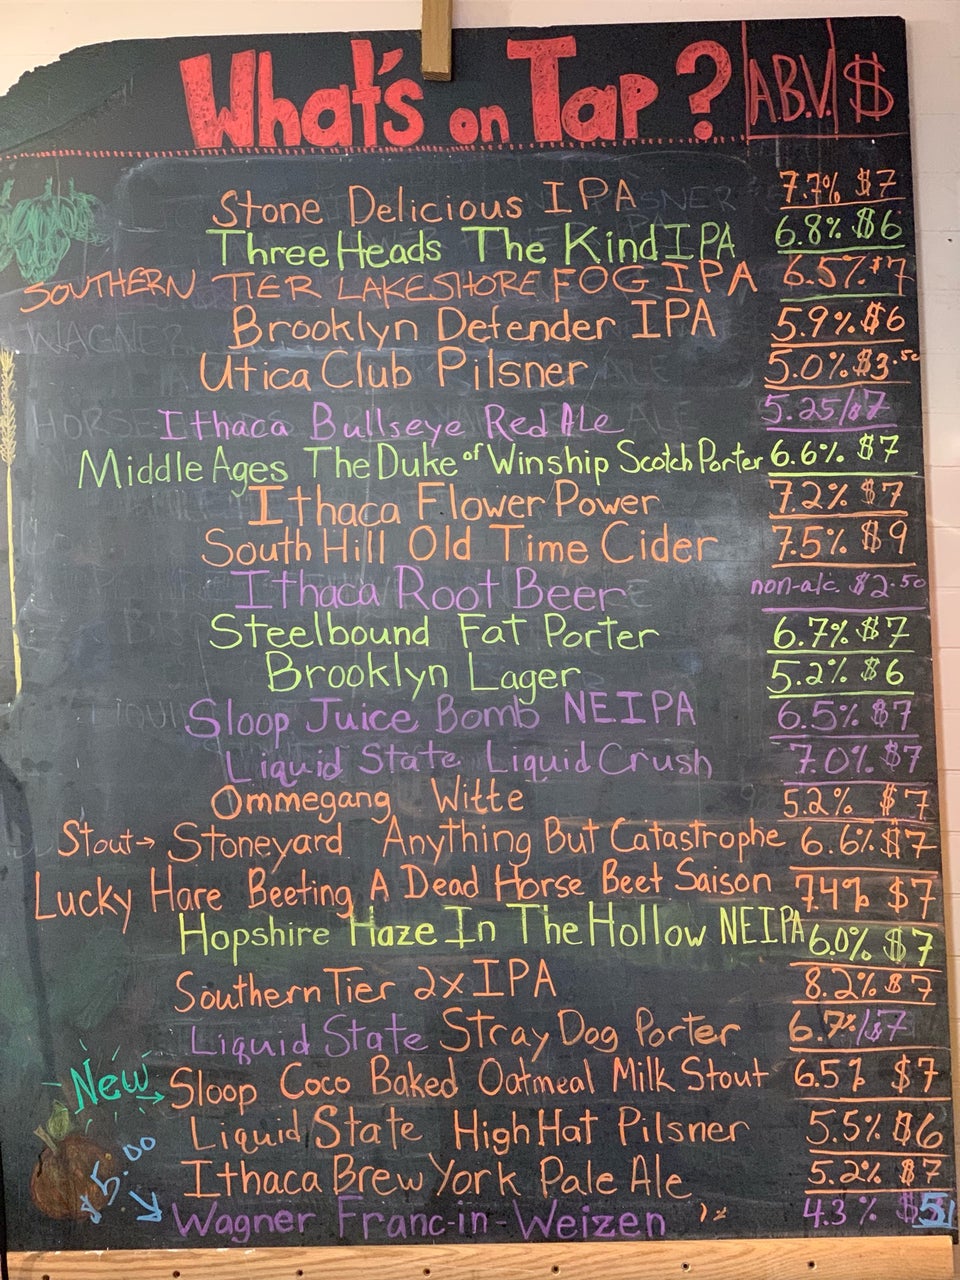 What's on Tap? A.B.V. $
Stone Delicious IPA 7.7% $7
Three Heads The Kind IPA 6.8% $6
SOUTHERN TIER LAKESHORE FOG IPA 6.5% $7
Brooklyn Defender IPA 5.9% $6
Utica Club Pilsner 5.0% $3.50
Ithaca Bullseye Red Ale 5.25/$7
Middle Ages The Duke of Winship Scotch Porter 6.6% $7
Ithaca Flower Power 7.2% $7
South Hill Old Time Cider 7.5% $9
Ithaca Root Beer non-alc. $2.50
Steelbound Fat Porter 6.7% $7
Brooklyn Lager 5.2% $6
Sloop Juice Bomb NEIPA 6.5% $7
Liquid State Liquid Crush 7.0% $7
Ommegang Witte 5.2% $7
Stout→ Stoneyard Anything But Catastrophe 6.6% $7
Lucky Hare Beeting A Dead Horse Beet Saison 7.4% $7
Hopshire Haze In The Hollow NEIPA 6.0% $7
Southern Tier 2x IPA 8.2% $7
Liquid State Stray Dog Porter 6.7%/$7
New → Sloop Coco Baked Oatmeal Milk Stout 6.5% $7
Liquid State High Hat Pilsner 5.5% $6
Ithaca Brew York Pale Ale 5.2% $7
$5.00
Wagner Franc-in-Weizen 4.3% $5